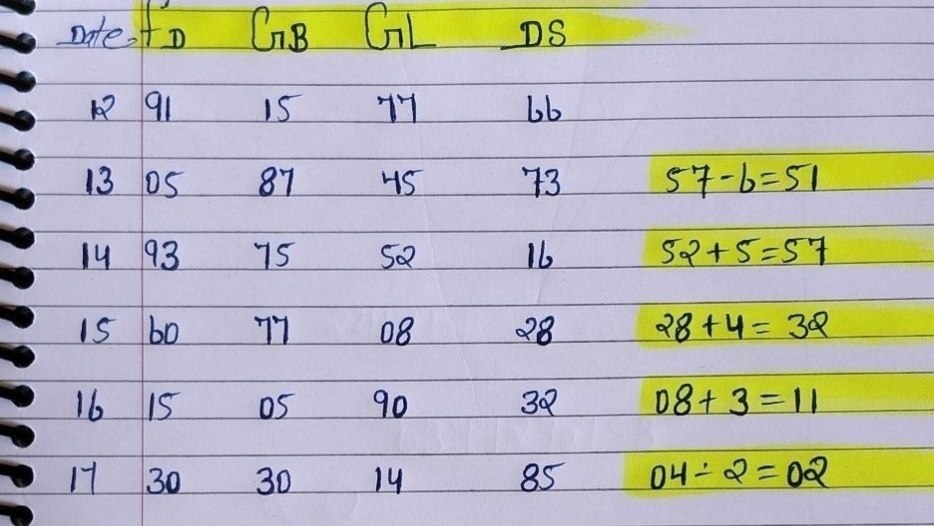 Date FD GB GL DS
12 91 15 77 66
13 05 87 45 73 57-6=51
14 93 75 52 16 52+5=57
15 60 77 08 28 28+4=32
16 15 05 90 32 08+3=11
17 30 30 14 85 04÷2=02